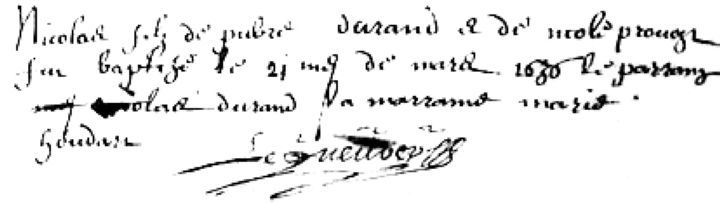 Nicolas filz de pierre durand et de nicole prougt
fut baptizé le 21 me de mars 1636 le parrang
nicolas durand la marranne marie
houdart